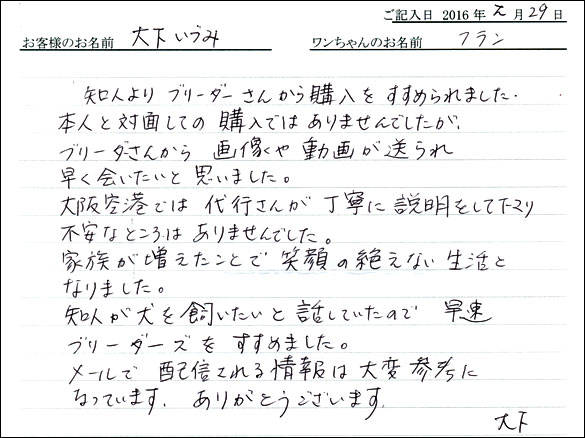 ご記入日 2016年2月29日
お客様のお名前 大下いづみ ワンちゃんのお名前 フラン
知人より ブリーダーさんから購入を すすめられました.
本人と対面しての 購入では ありませんでしたが、
ブリーダさんから 画像や動画が送られ
早く会いたいと思いました。
大阪空港では 代行さんが 丁寧に説明をして下さり
不安なところは ありませんでした。
家族が増えたことで 笑顔の絶えない生活と
なりました。
知人が犬を飼いたいと 話していたので 早速
ブリーダーズを すすめました。
メールで 配信される情報は大変参考に
なっています. ありがとうございます.
大下